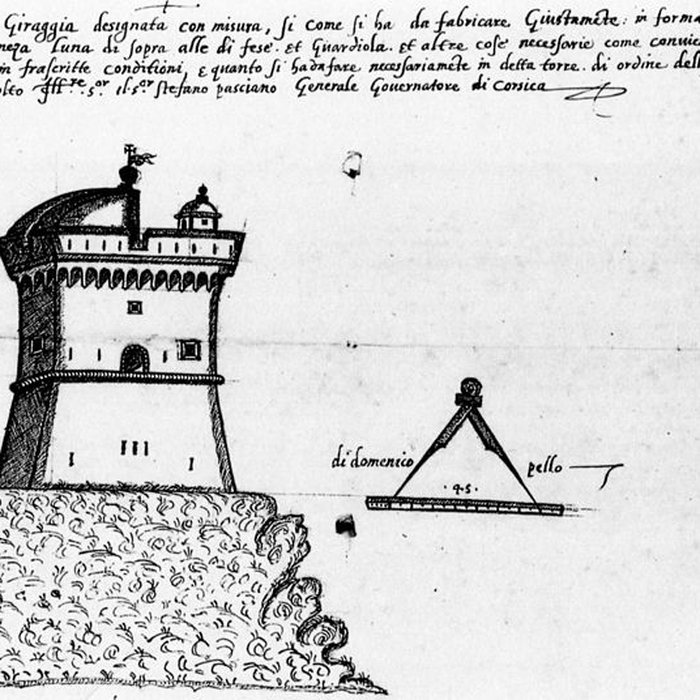 Giraggia designata con misura, si come si ha da fabricare Giustamēte: in forma
Luna di sopra alle di fese. et Guardiola. et altre cose necessarie come convie
in frascritte conditioni, e quanto si ha da fare necessariamēte in detta torre. di ordine del
stefano pasciano Generale Governatore di Corsica
di domenico pello
.45.